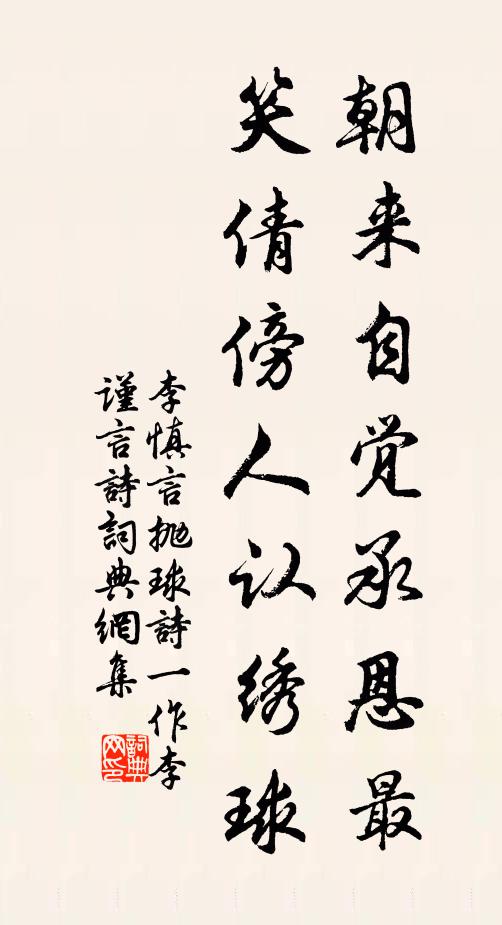 朝来自觉承恩最
笑倩傍人认绣球
李慎言抛球詩一作李
谨言詩詞典網集
詞典網印